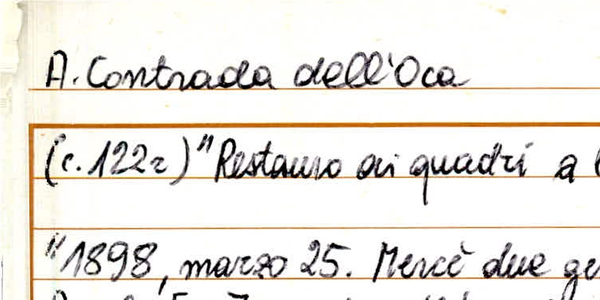 A. Contrada dell'Oca
(c. 122r) "Restauro di quadri a
"1898, marzo 25. Mercè due ge